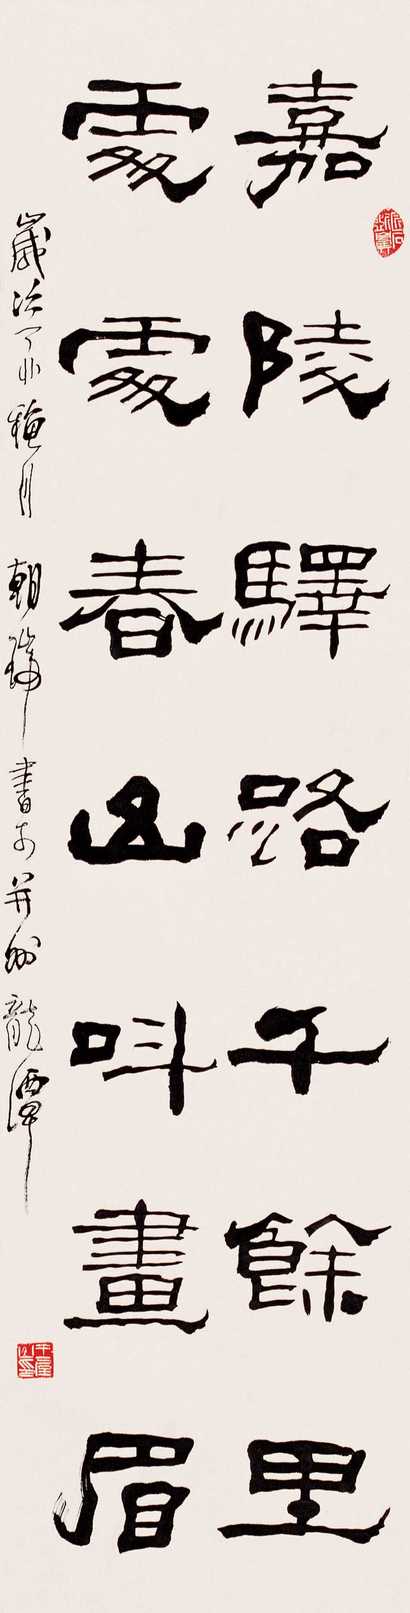 嘉陵驛路千餘里
處處春山叫畫眉
歲次丁丑梅月朝瑞書于并州龍潭